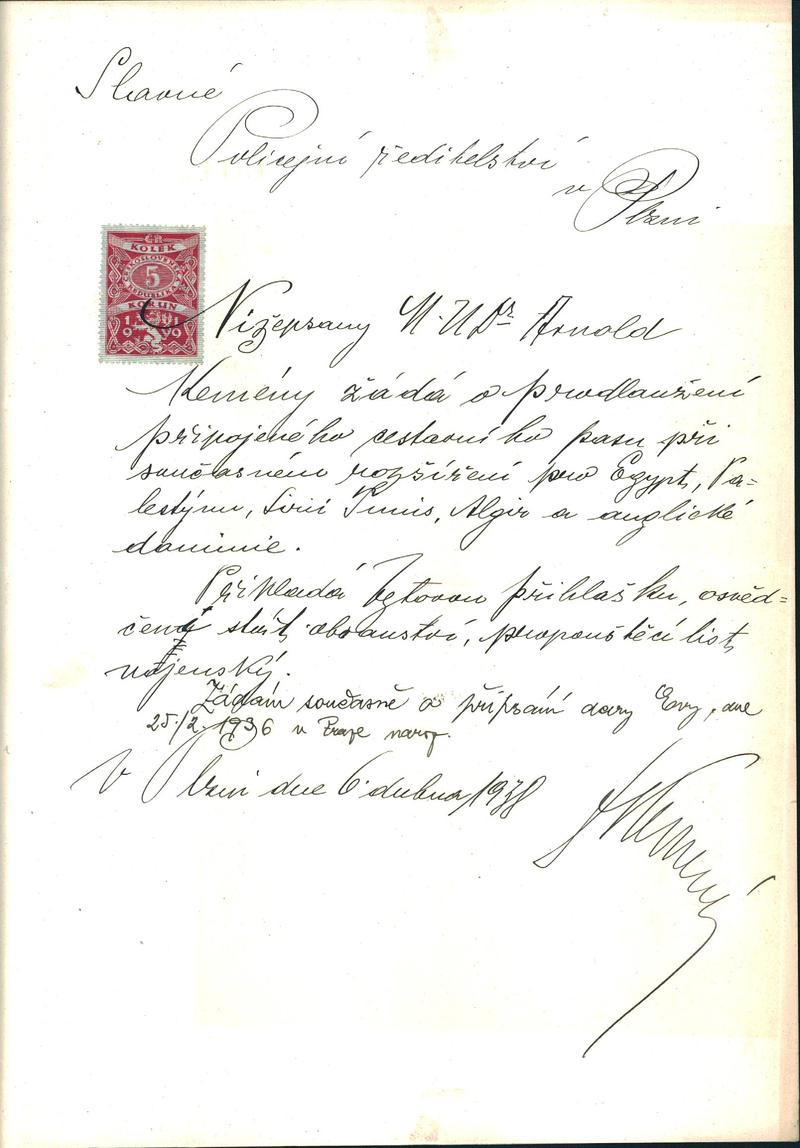 Slavné
Policejní ředitelství
v Plzni
ČR
KOLEK
ČESKOSLOVENSKÁ
5
REPUBLIKA
KORUN
1919
Nížepsaný M.U.Dr Arnold
Kemény žádá o prodloužení
připojeného cestovního pasu při
současném rozšíření pro Egypt, Pa=
lestýnu, Sirii Tunis, Algir a anglické
dominie.
Přikládá bytovou přihlášku, osvěd=
čení stát. občanství, propouštěcí list
vojenský.
Žádám současně o připsání dcery Evy, dne
25./2. 1936 v Praze naroz.
V Plzni dne 6. dubna 1938
Kemény